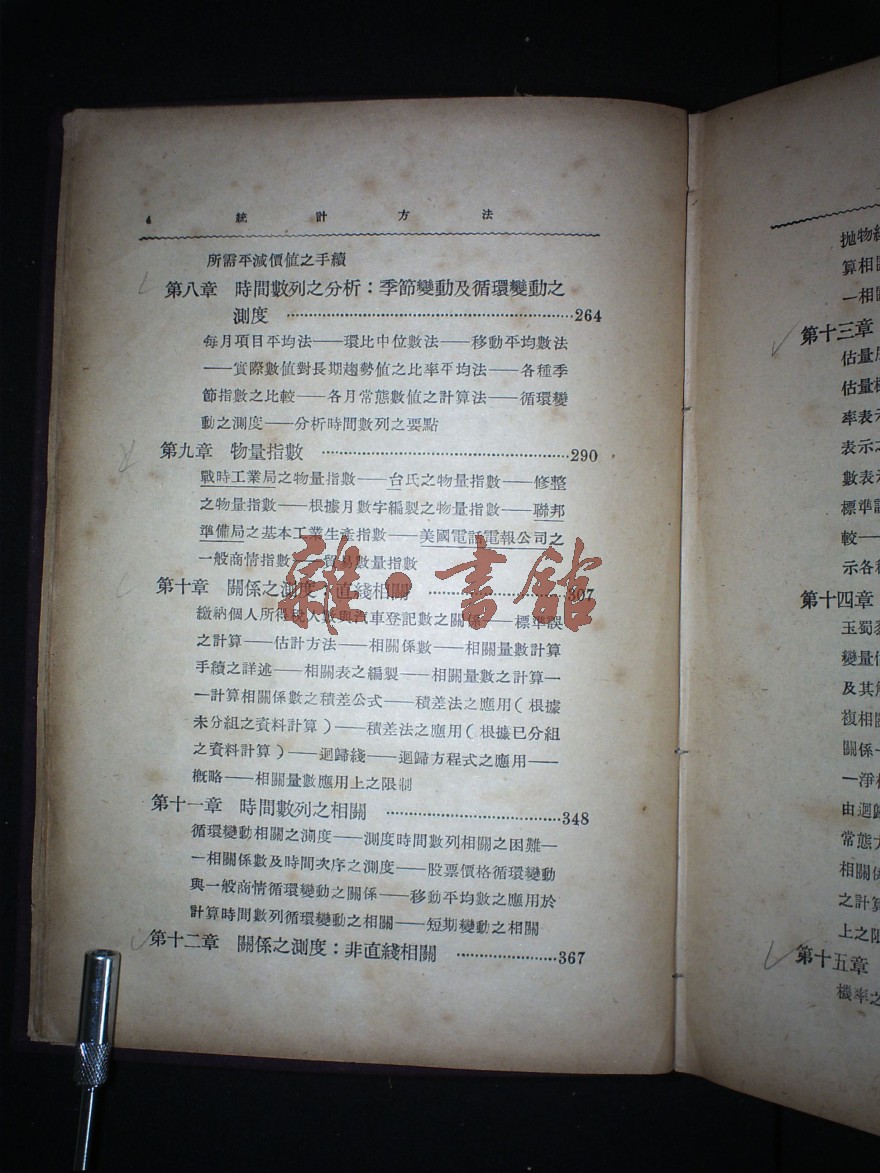 4 統計方法
所需平減價值之手續
第八章 時間數列之分析：季節變動及循環變動之
測度 ························264
每月項目平均法——環比中位數法——移動平均數法
——實際數值對長期趨勢值之比率平均法——各種季
節指數之比較——各月常態數值之計算法——循環變
動之測度——分析時間數列之要點
第九章 物量指數 ························290
戰時工業局之物量指數——台氏之物量指數——修整
之物量指數——根據月數字編製之物量指數——聯邦
準備局之基本工業生產指數——美國電話電報公司之
一般商情指數——貿易數量指數
第十章 關係之測度：直綫相關 ························307
繳納個人所得稅人數與汽車登記數之關係——標準誤
之計算——估計方法——相關係數——相關量數計算
手續之詳述——相關表之編製——相關量數之計算—
—計算相關係數之積差公式——積差法之應用（根據
未分組之資料計算）——積差法之應用（根據已分組
之資料計算）——迴歸綫——迴歸方程式之應用——
概略——相關量數應用上之限制
第十一章 時間數列之相關 ························348
循環變動相關之測度——測度時間數列相關之困難—
—相關係數及時間次序之測度——股票價格循環變動
與一般商情循環變動之關係——移動平均數之應用於
計算時間數列循環變動之相關——短期變動之相關
第十二章 關係之測度：非直綫相關 ························367
雜·書館
拋物
算相
一相
第十三章
估量
估量
率表示
表示之
數表
標準
較——
示各種
第十四章
玉蜀
變量
及其
複相
關係
一淨
由迴歸
常態
相關
之計算
上之限
第十五章
機率之